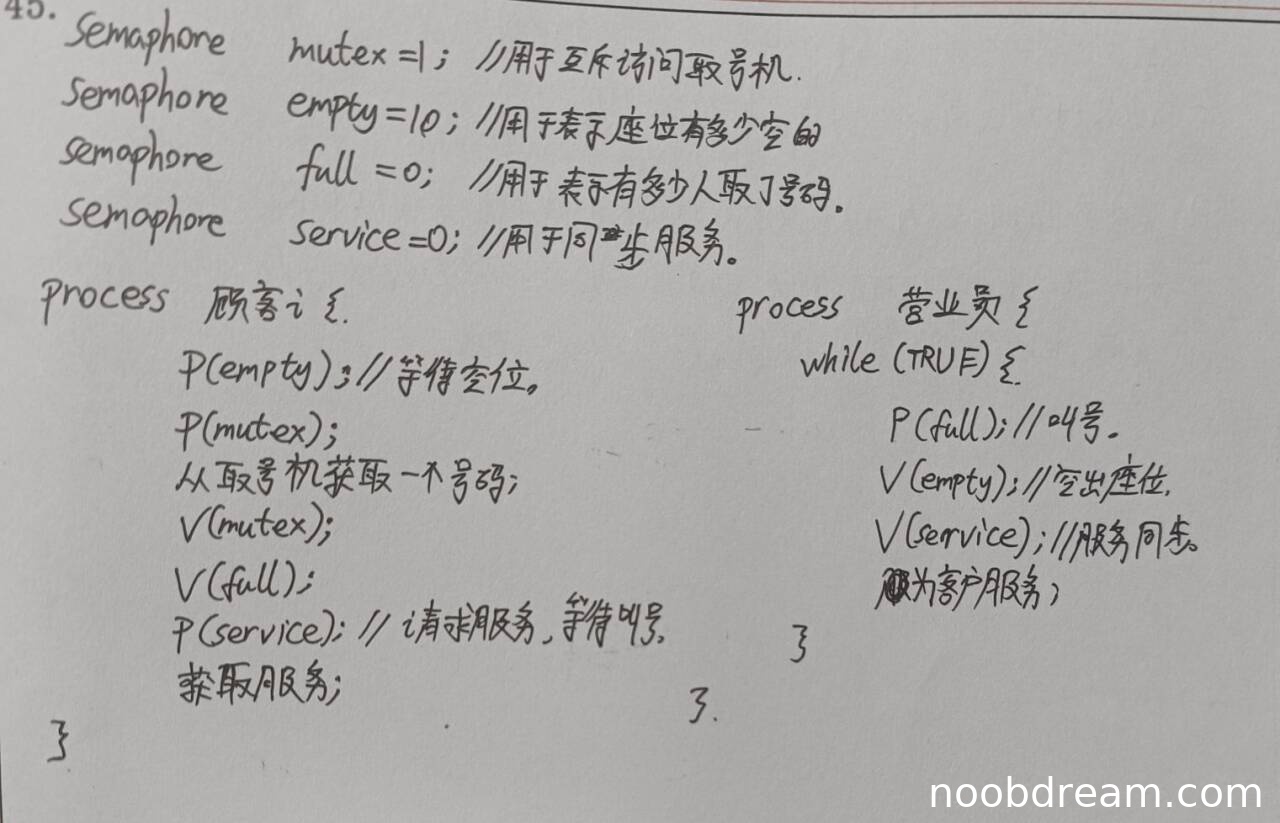 45.
Semaphore mutex=1; //用于互斥访问取号机.
Semaphore empty=10; //用于表示座位有多少空的
semaphore full=0; //用于表示有多少人取了号码。
semaphore service=0; //用于同步服务。
process 顾客i {.
P(empty); //等待空位。
P(mutex);
从取号机获取一个号码;
V(mutex);
V(full);
P(service); // 请求服务,等待叫号.
获取服务;
}
process 营业员 {
while (TRUE) {.
P(full); //叫号.
V(empty); //空出座位.
V(service); //服务同步。
为客户服务;
}
}.
noobdream.com